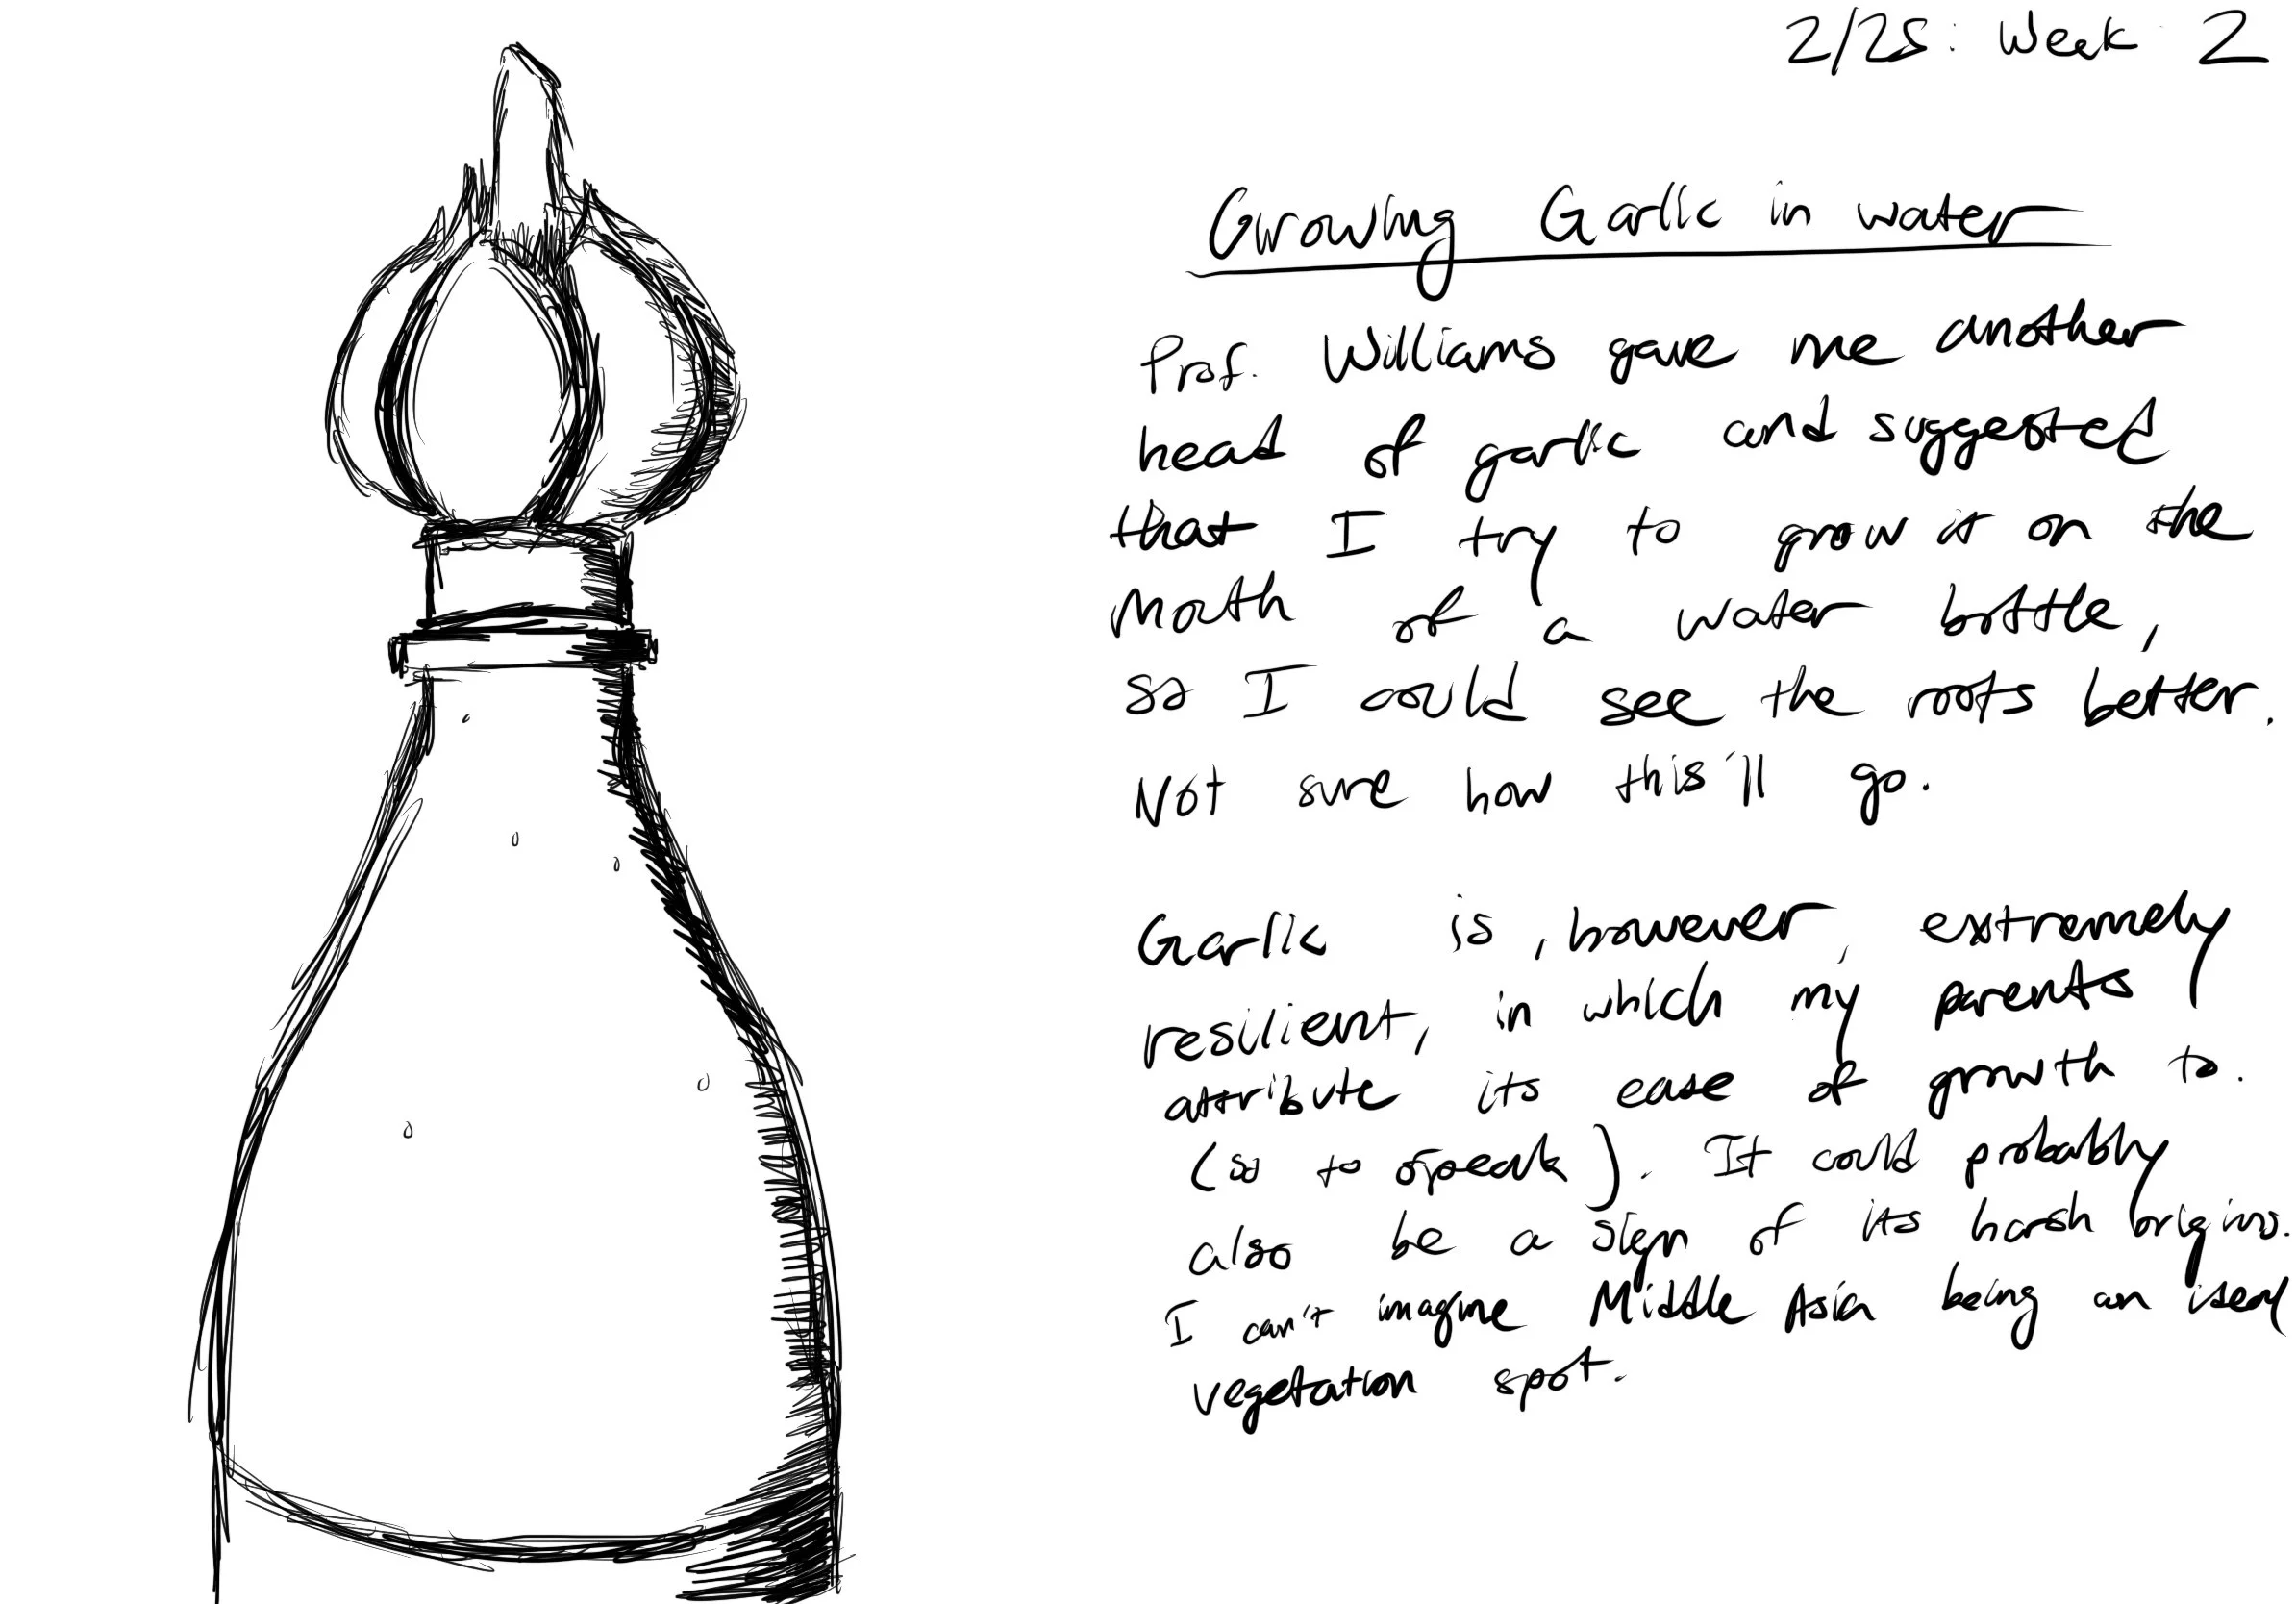 2/25: Week 2
Growing Garlic in water
Prof. Williams gave me another
head of garlic and suggested
that I try to grow it on the
Mouth of a water bottle,
so I could see the roots better.
Not sure how this'll go.
Garlic is, however, extremely
resilient, in which my parents
attribute its ease of growth to.
(so to speak). It could probably
also be a sign of its harsh origins.
I can't imagine Middle Asia being an ideal
vegetation spot.